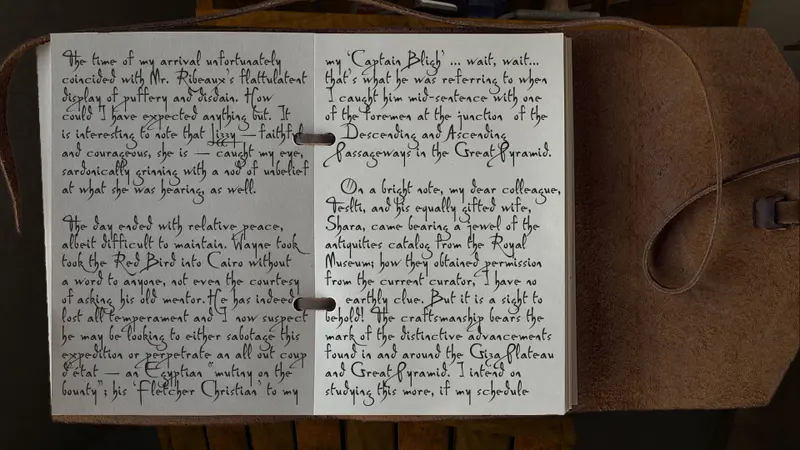 The time of my arrival unfortunately
coincided with Mr. Ribeaux's flattulatent
display of puffery and disdain. How
could I have expected anything but. It
is interesting to note that Jizzy — faithful
and courageous, she is — caught my eye,
sardonically grinning with a nod of unbelief
at what she was hearing, as well.
The day ended with relative peace,
albeit difficult to maintain. Wayne took
took the Red Bird into Cairo without
a word to anyone, not even the courtesy
of asking his old mentor. He has indeed
lost all temperament and I now suspect
he may be looking to either sabotage this
expedition or perpetrate an all out coup
d'état — an Egyptian "mutiny on the
bounty"; his 'Fletcher Christian' to my
my 'Captain Bligh' ... wait, wait...
that's what he was referring to when
I caught him mid-sentence with one
of the foremen at the junction of the
Descending and Ascending
Passageways in the Great Pyramid.
On a bright note, my dear colleague,
Teslti, and his equally gifted wife,
Shara, came bearing a jewel of the
antiquities catalog from the Royal
Museum; how they obtained permission
from the current curator, I have no
earthly clue. But it is a sight to
behold! The craftsmanship bears the
mark of the distinctive advancements
found in and around the Giza Plateau
and Great Pyramid. I intend on
studying this more, if my schedule